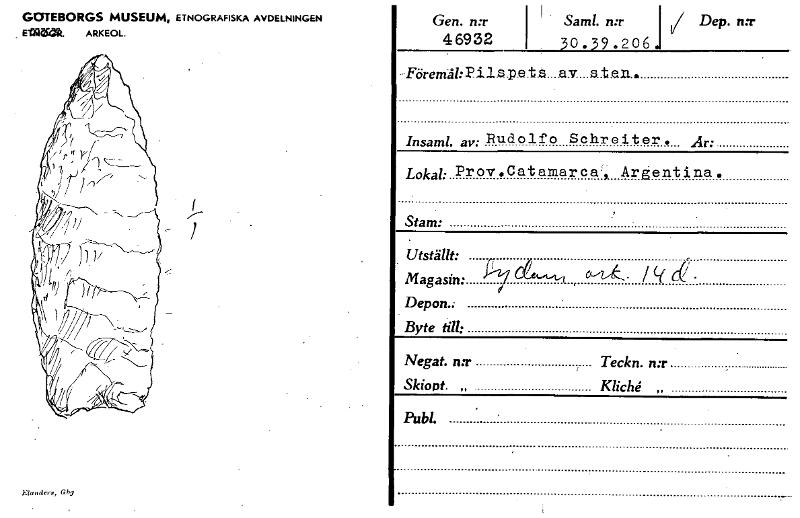 GÖTEBORGS MUSEUM, ETNOGRAFISKA AVDELNINGEN
ETNOGR. ARKEOL.
1/1
Elanders, Gbg
Gen. n:r Saml. n:r Dep. n:r
46932 30.39.206.
Föremål: Pilspets av sten.
Insaml. av: Rudolfo Schreiter. År:
Lokal: Prov.Catamarca, Argentina.
Stam:
Utställt:
Magasin: Sydam. ark. 14 d.
Depon.:
Byte till:
Negat. n:r Teckn. n:r
Skiopt. „ Kliché „
Publ.